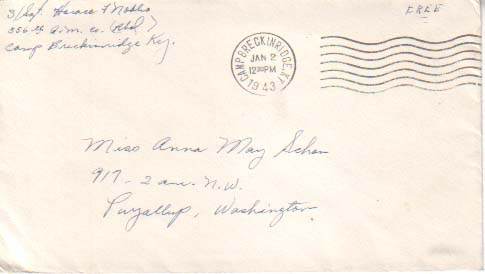 S/Sgt. Horace F Nobbs
FREE
356th a.m. co. (Rbl.)
Camp Breckinridge Ky.
CAMP BRECKINRIDGE, KY.
JAN 2
12 PM
1943
Miss Anna May Schon
917 - 2 ave. N.W.
Puyallup, Washington